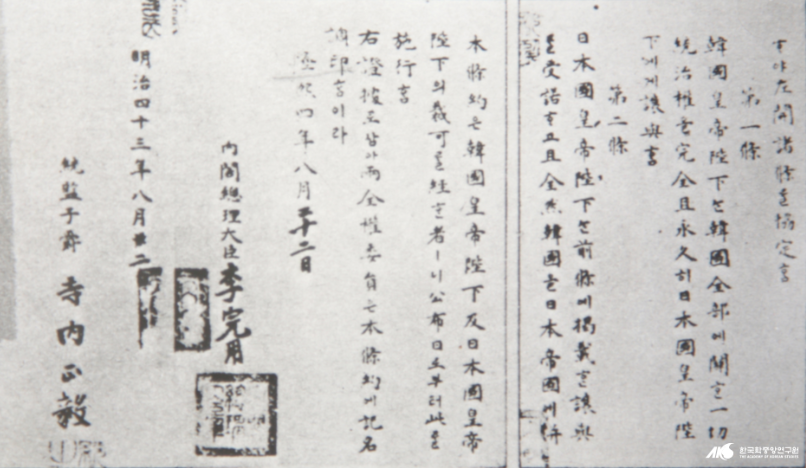 ᄒᆞ야左開諸條를協定홈
第一條
韓國皇帝陛下ᄂᆞᆫ韓國全部에關ᄒᆞᆫ一切
統治權을完全且永久히日本國皇帝陛
下에게讓與홈
第二條
日本國皇帝陛下ᄂᆞᆫ前條에揭載ᄒᆞᆫ讓與
를受諾ᄒᆞ고且全然韓國을日本帝國에倂
本條約은韓國皇帝陛下及日本國皇帝
陛下의裁可를經ᄒᆞᆫ者ㅣ니公布日로부터此를
施行홈
右證據로삼아兩全權委員은本條約에記名
調印홈이라
隆熙四年八月二十二日
內閣總理大臣李完用
明治四十三年八月廿二
統監子爵 寺內正毅
한국학중앙연구원
THE ACADEMY OF KOREAN STUDIES